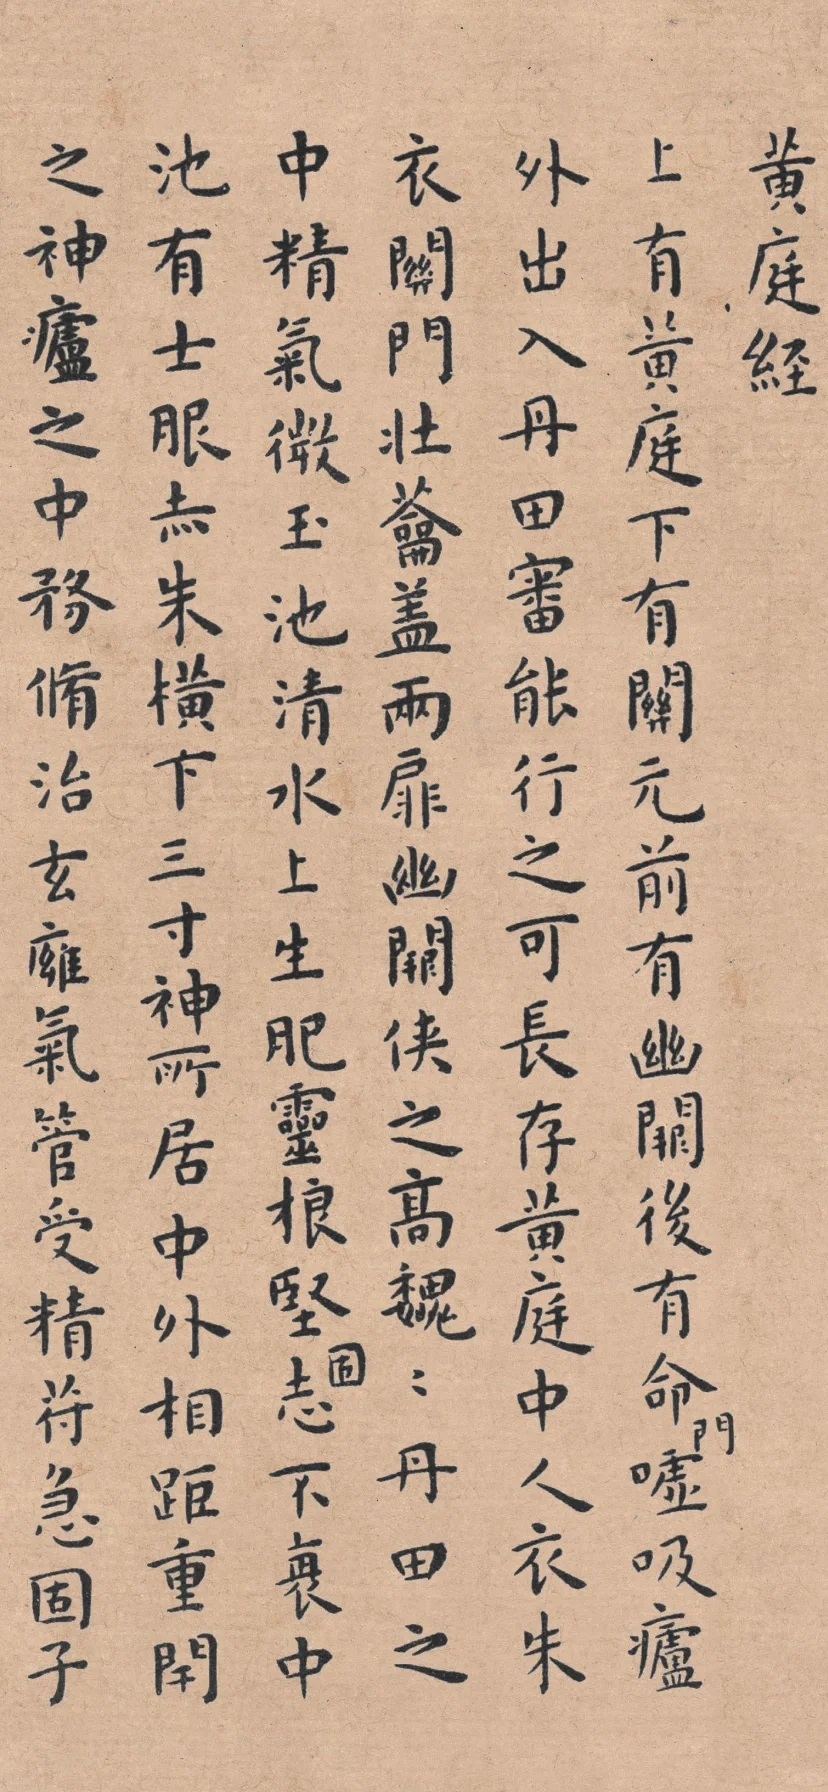 黃庭經
上有黃庭下有關元前有幽闕後有命門噓吸廬
外出入丹田審能行之可長存黃庭中人衣朱
衣關門壯蘥蓋兩扉幽闕俠之高魏〻丹田之
中精氣微玉池清水上生肥靈根堅固志不衰中
池有士服赤朱橫下三寸神所居中外相距重閇
之神廬之中務脩治玄廱氣管受精苻急固子